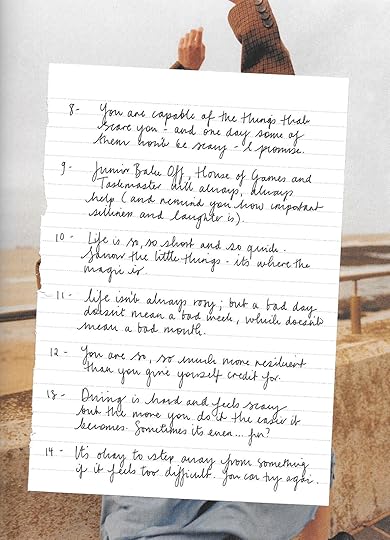 8- You are capable of the things that
scare you - and one day some of
them won't be scary - I promise.
9- Junior Bake Off, House of Games and
Taskmaster will always, always
help (and remind you how important
silliness and laughter is).
10 - Life is so, so short and so quick.
Savour the little things - its where the
magic is.
11 - Life isn't always rosy; but a bad day
doesn't mean a bad week, which doesn't
mean a bad month.
12 - You are so, so much more resilient
than you give yourself credit for.
13 - Driving is hard and feels scary
but the more you do it the easier it
becomes. Sometimes its even... fun?
14 - It's okay to step away from something
if it feels too difficult. You can try again.